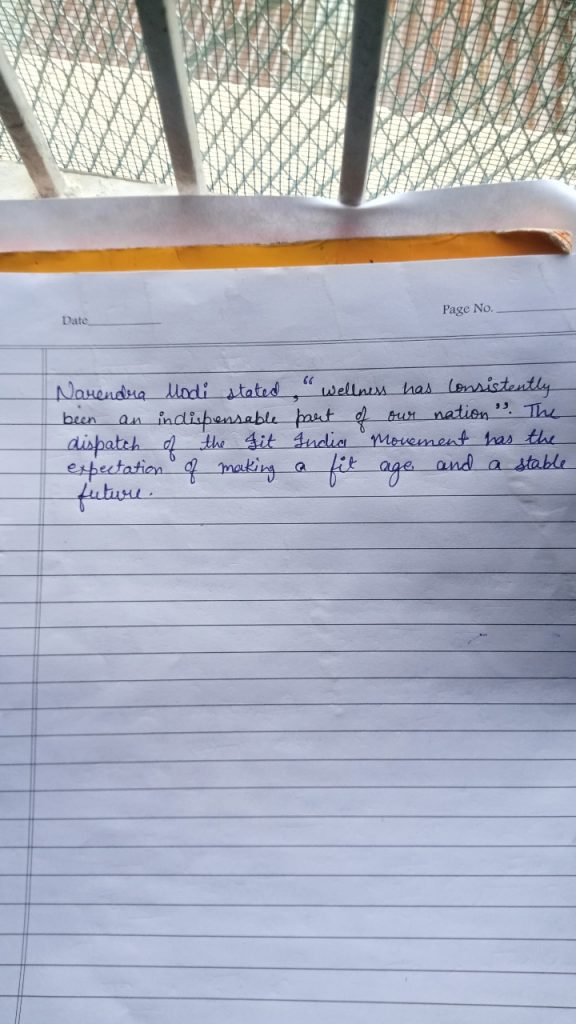 Date
Page No.
Narendra Modi stated, “wellness has consistently
been an indispensable part of our nation”. The
dispatch of the Fit India Movement has the
expectation of making a fit age and a stable
future.